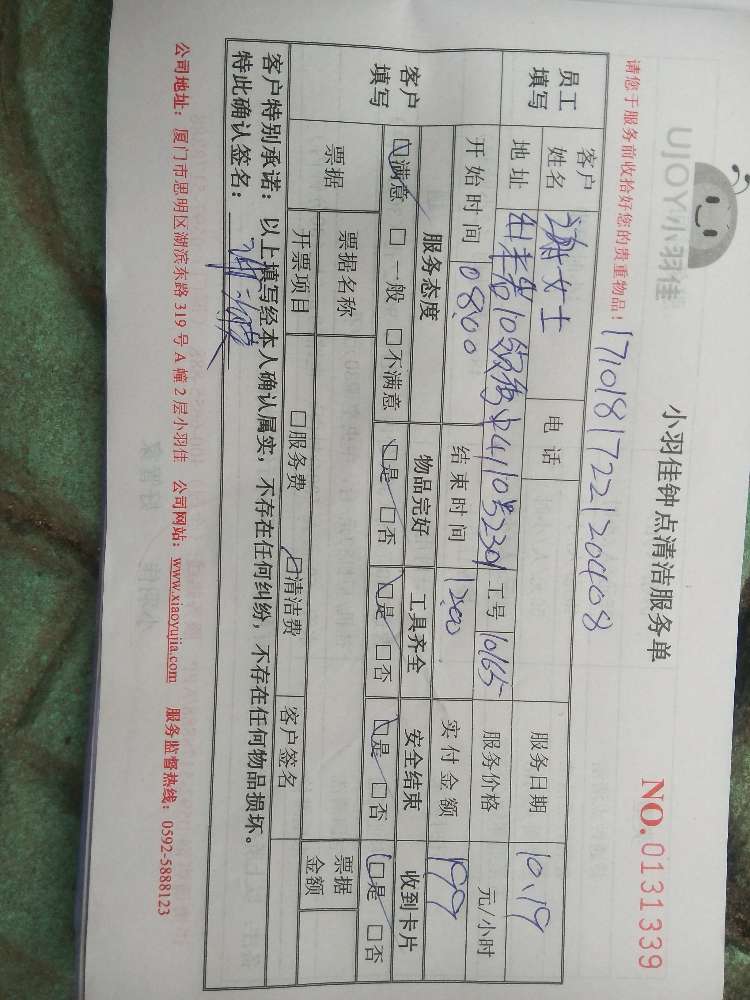 UJOY小羽佳
小羽佳钟点清洁服务单
NO.0131339
请您于服务前收拾好您的贵重物品!
17101817221220408
员工填写 客户姓名 谢女士 电话 服务日期 10.19
地址 10 2301 工号 10165 服务价格 元/小时
开始时间 08:00 结束时间 12:00 实付金额 199
客户填写 服务态度 物品完好 工具齐全 安全结束 收到卡片
☑满意 □一般 □不满意 ☑是 □否 ☑是 □否 ☑是 □否 ☑是 □否
票据 票据名称 票据金额
开票项目 □服务费 ☑清洁费 客户签名
客户特别承诺:以上填写经本人确认属实,不存在任何纠纷,不存在任何物品损坏。
特此确认签名:
公司地址:厦门市思明区湖滨东路319号A幢2层小羽佳 公司网站:www.xiaoyujia.com 服务监督热线:0592-5888123